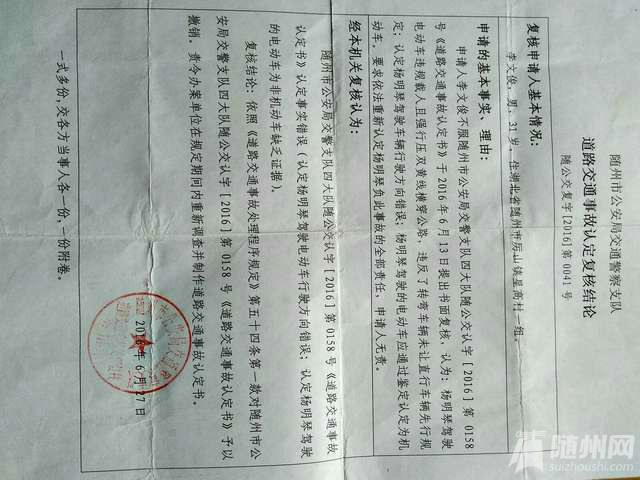 随州市公安局交通警察支队
道路交通事故认定复核结论
随公交复字[2016]第0041号
复核申请人基本情况：
李文俊，男，31岁，住湖北省随州市历山镇星高村一组。
申请的基本事实、理由：
申请人李文俊不服随州市公安局交警支队四大队随公交认字[2016]第0158
号《道路交通事故认定书》于2016年6月13日提出书面复核，认为：杨明琴驾驶
电动车违规载人且强行压双黄线横穿公路，违反了转弯车辆未让直行车辆先行规
定；认定杨明琴驾驶车辆行驶方向错误；杨明琴驾驶的电动车应通过鉴定认定为机
动车，要求依法重新认定杨明琴负此事故的全部责任，申请人无责。
经本机关复核认为：
随州市公安局交警支队四大队随公交认字[2016]第0158号《道路交通事故
认定书》认定事实错误（认定杨明琴驾驶电动车行驶方向错误；认定杨明琴驾驶
的电动车为非机动车缺乏证据）。
复核结论：依照《道路交通事故处理程序规定》第五十四条第一款对随州市公
安局交警支队四大队随公交认字[2016]第0158号《道路交通事故认定书》予以
撤销。责令办案单位在规定期间内重新调查并制作道路交通事故认定书。
2016年6月27日
一式多份，交各方当事人各一份，一份附卷。
随州网
suizhoushi.com